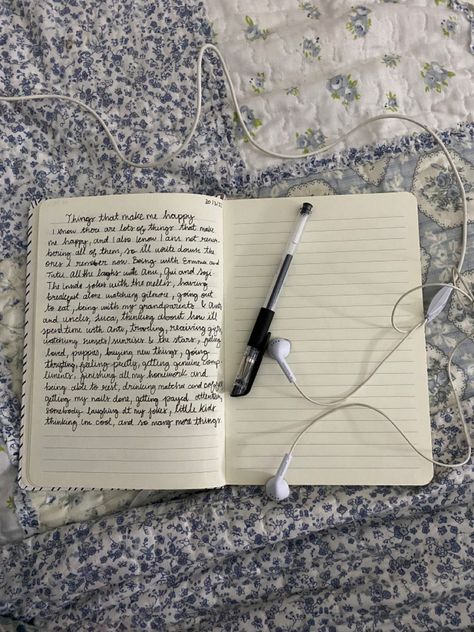 Things that make me happy
I know there are lots of things that make
me happy, and I also know I am not remem
bering all of them, so i'll write down the
ones I remember now. Being with Emma and
Tutu, all the laughs with Anu, Gui and
The inside jokes with the having
breakfast alone watching gilmore, going out
to eat, being with my grandparents &
and uncles, Luca, thinking about how i'll
spend time with Antu, traveling, receiving gifts
watching sunsets/sunrises & the stars,
loved, puppies, buying new things, going
thrifting, feeling pretty, getting genuine comp
liments, finishing all my homework and
being able to rest, drinking matcha and
getting my nails done, getting payed attention
somebody laughing at my jokes, little kids
thinking im cool, and so many more things.